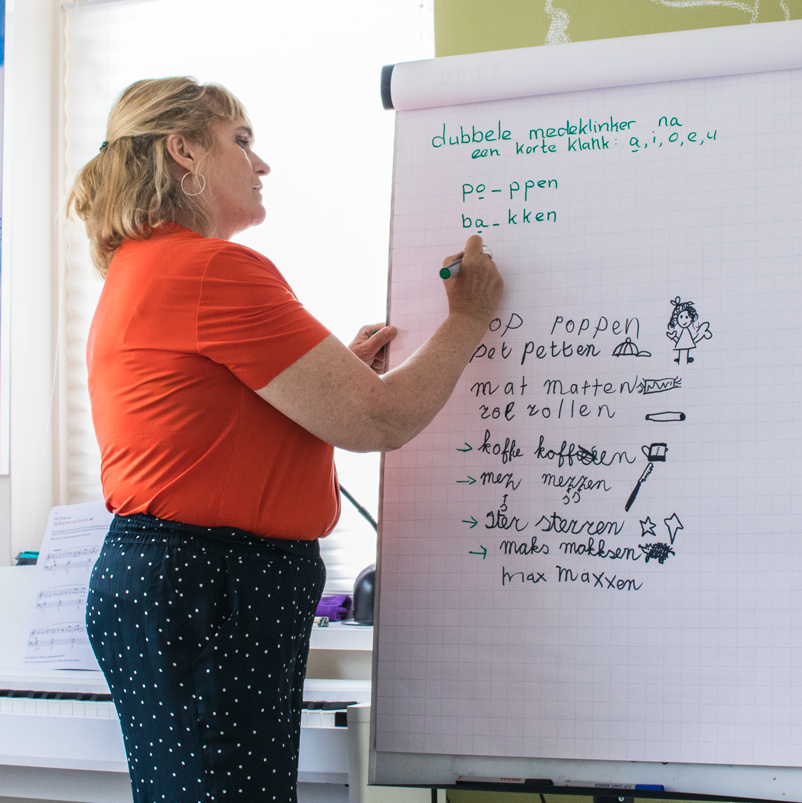 dubbele medeklinker na
een korte klank: a, i, o, e, u
po - ppen
ba - kken
pop poppen
pet petten
mat matten
rol rollen
→ koffie koffieen
→ mez mezzen
→ ster sterren
→ maks makksen
max maxxen